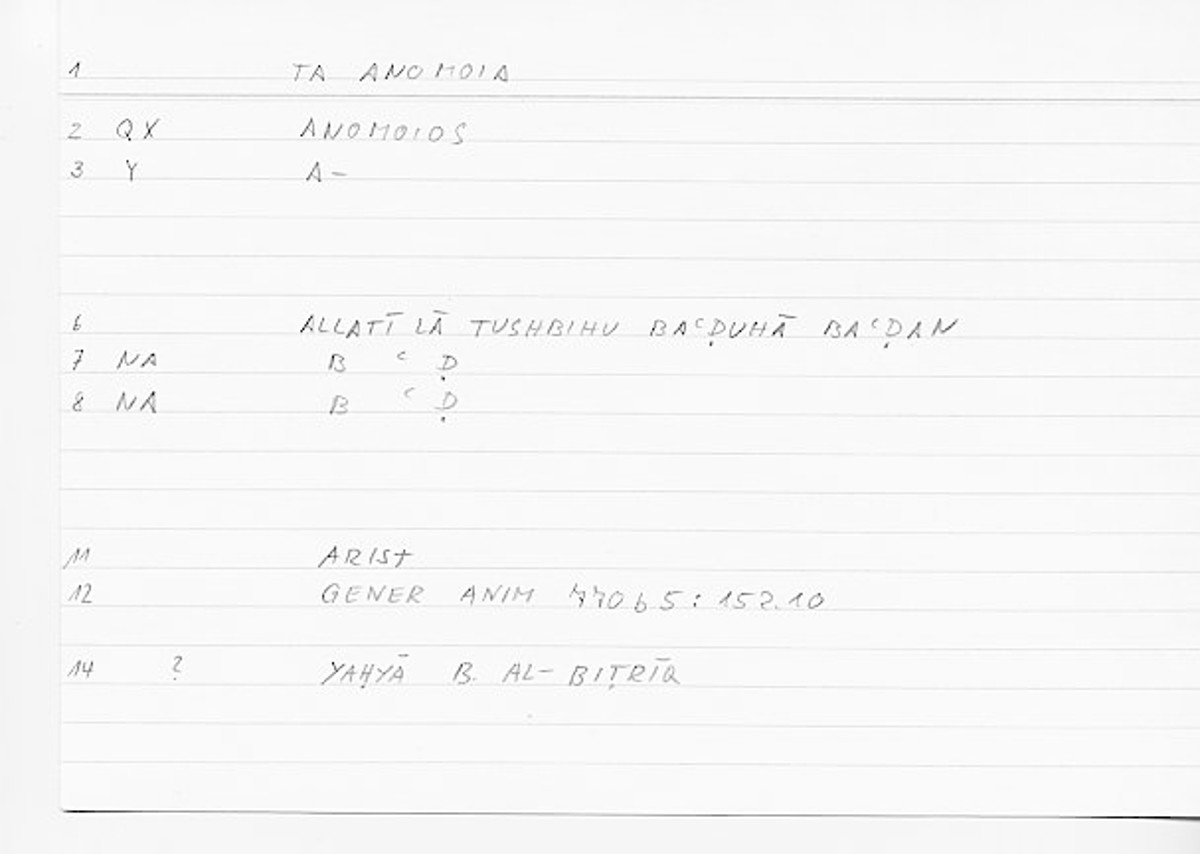 1 TA ANOMOIA
2 QX ANOMOIOS
3 Y A-
6 ALLATĪ LĀ TUSHBIHU BAᶜḌUHĀ BAᶜḌAN
7 NA B ᶜ Ḍ
8 NA B ᶜ Ḍ
11 ARIST
12 GENER ANIM 770b5: 152.10
14 ? YAḤYĀ B. AL-BIṬRĪQ